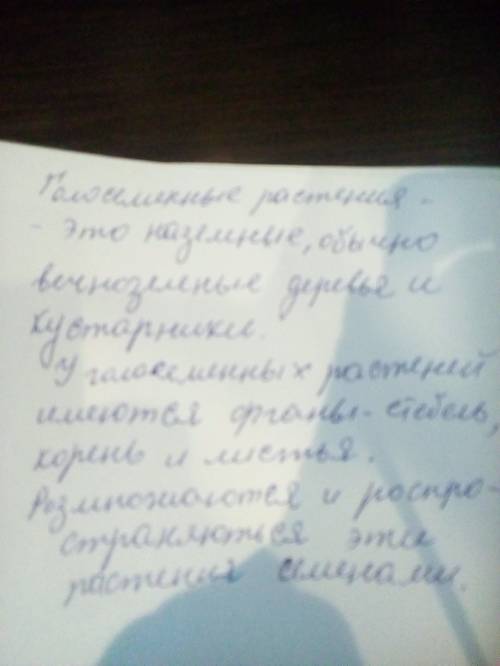 Голосеменные растения -
- это наземные, обычно
вечнозеленые деревья и
кустарники.
У голосеменных растений
имеются органы - стебель,
корень и листья.
Размножаются и распро-
страняються эти
растения семенами.